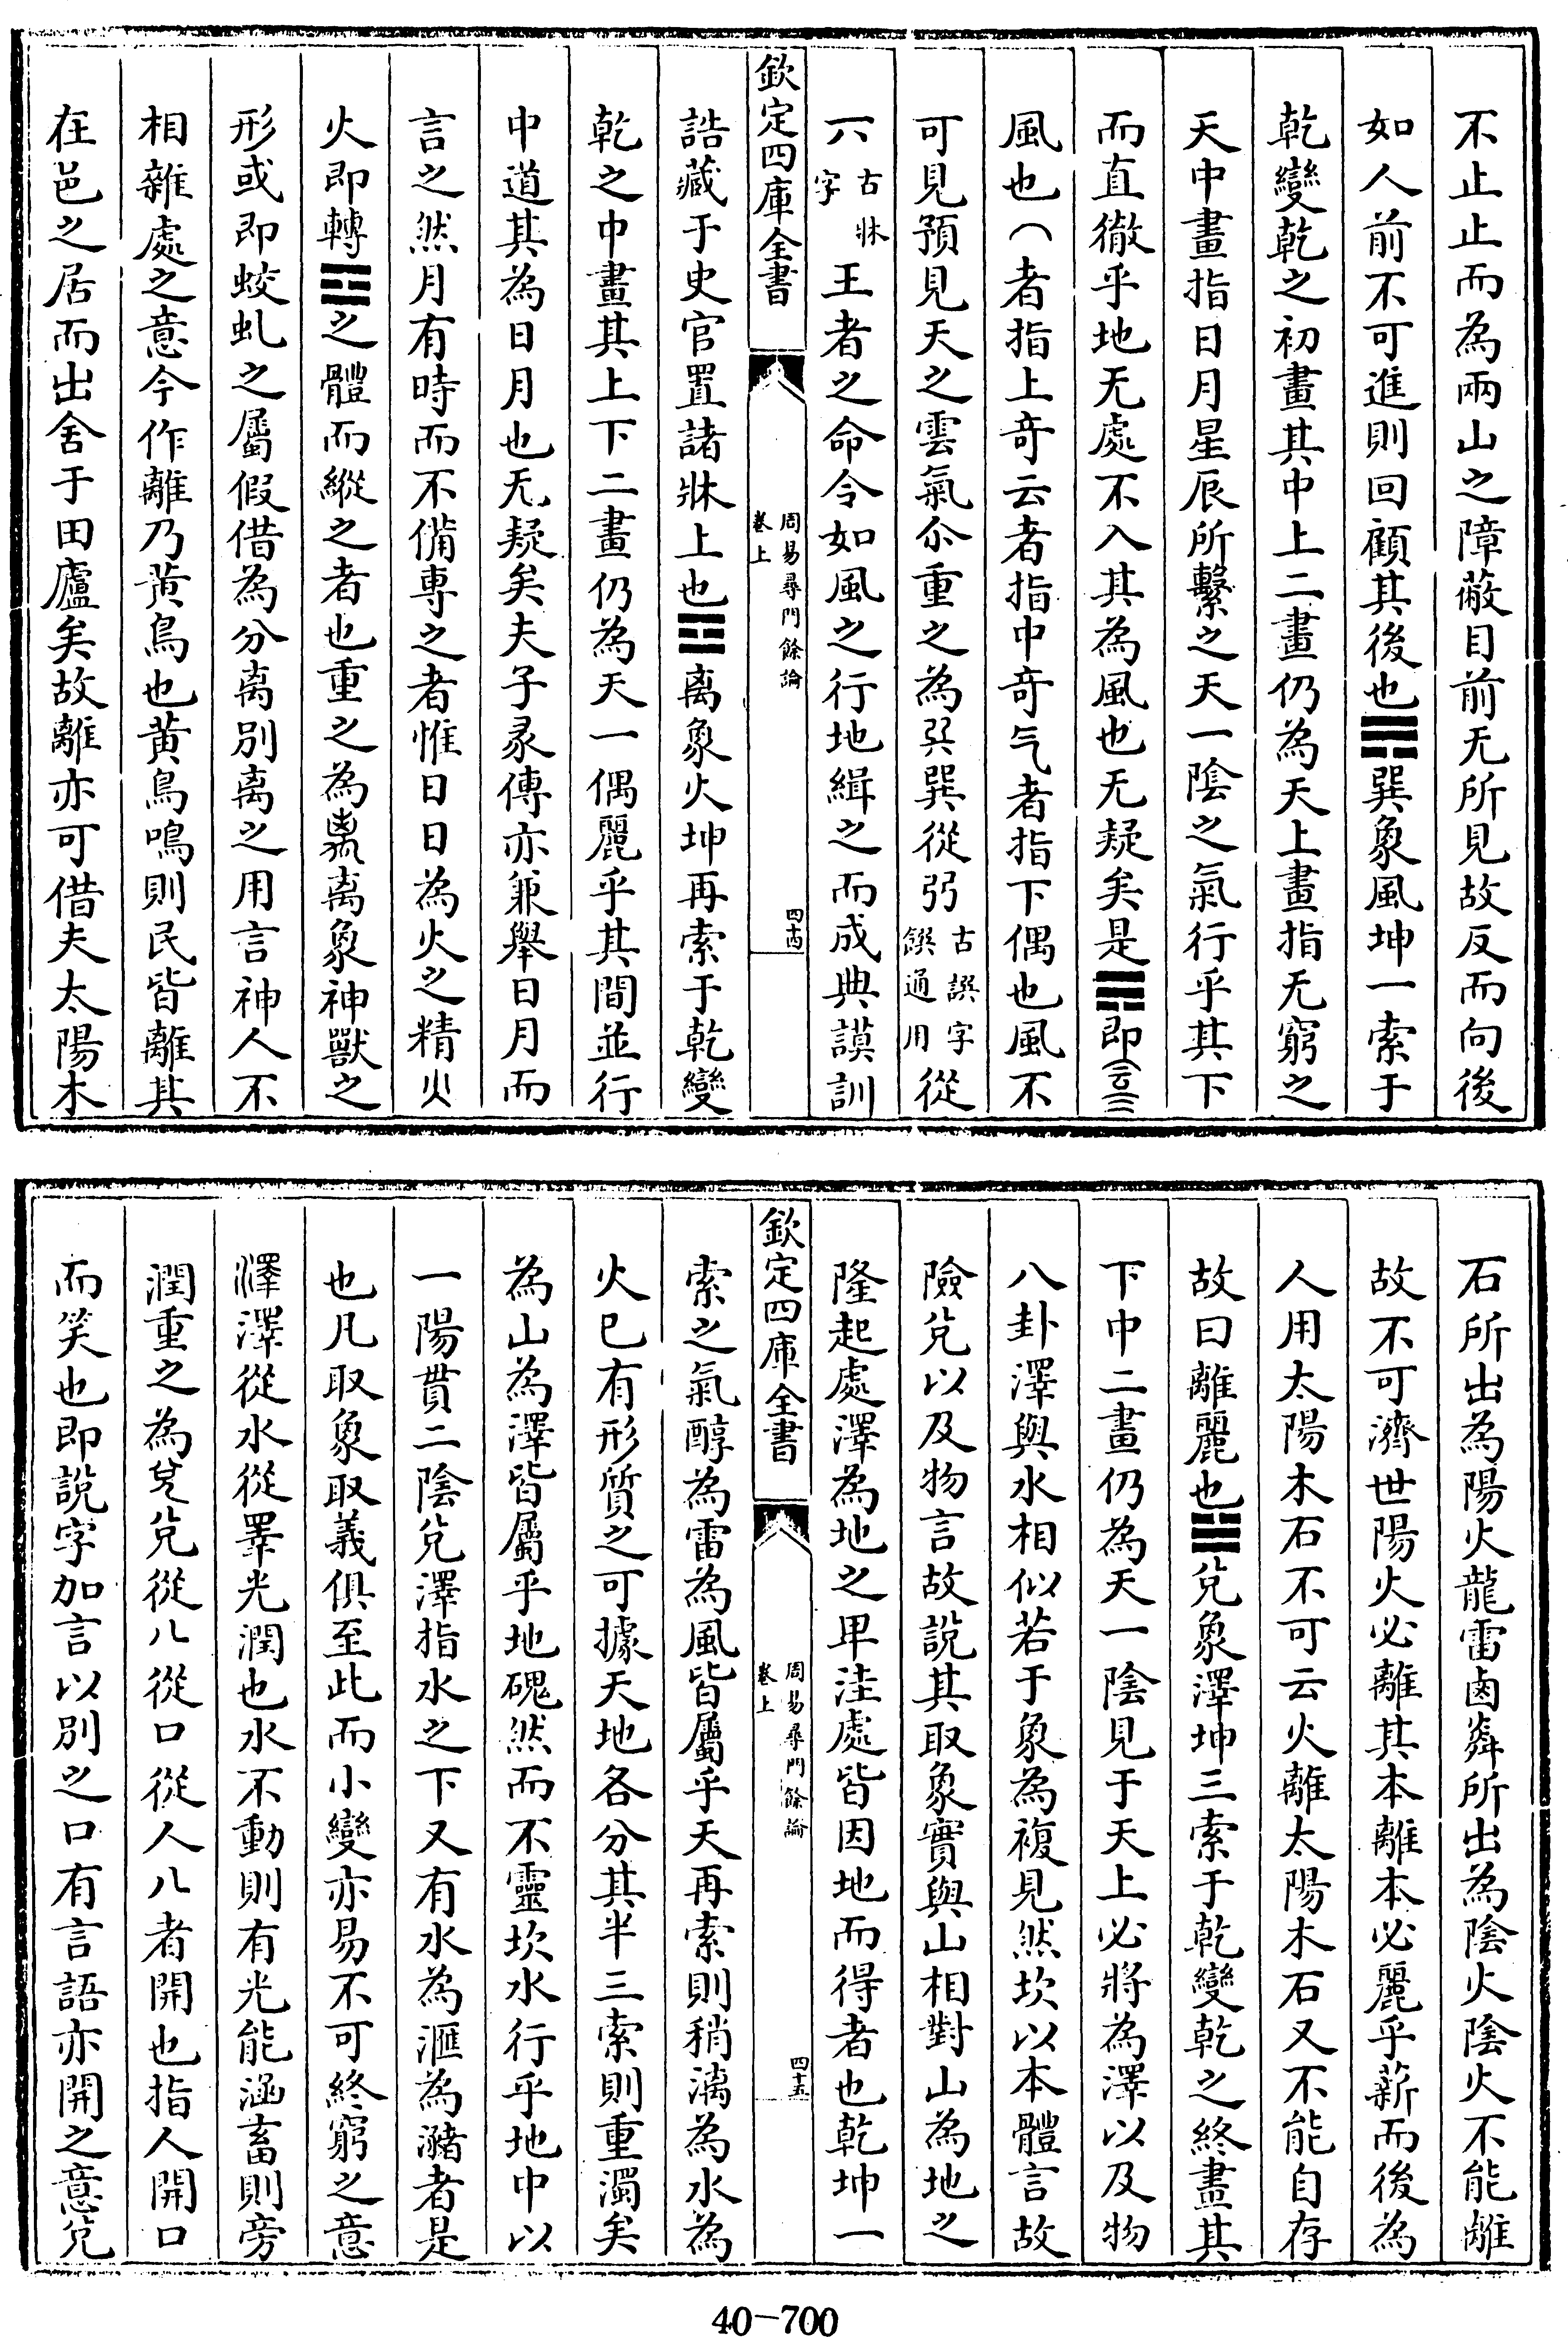 不止止而為兩山之障蔽目前无所見故反而向後
如人前不可進則回顧其後也☴巽象風坤一索于
乾變乾之初畫其中上二畫仍為天上畫指无窮之
天中畫指日月星辰所繫之天一陰之氣行乎其下
而直徹乎地无處不入其為風也无疑矣是☴即
風也︵者指上奇云者指中奇气者指下偶也風不
可見預見天之雲氣重之為巽從弜古譔字饌通用從
古牀字王者之命令如風之行地緝之而成典謨訓
欽定四庫全書
周易尋門餘論
卷上
四十四
誥藏于史官置諸牀上也☲离象火坤再索于乾變
乾之中畫其上下二畫仍為天一偶麗乎其間並行
中道其為日月也无疑矣夫子彖傳亦兼舉日月而
言之然月有時而不備專之者惟日日為火之精火
火即轉☲之體而縱之者也重之為离象神獸之
形或即蛟虬之屬假借為分离別离之用言神人不
相雜處之意今作離乃黃鳥也黃鳥鳴則民皆離其
在邑之居而出舍于田廬矣故離亦可借夫太陽木
石所出為陽火龍雷鹵粦所出為陰火陰火不能離
故不可濟世陽火必離其本離本必麗乎薪而後為
人用太陽木石不可云火離太陽木石又不能自存
故曰離麗也☱兌象澤坤三索于乾變乾之終畫其
下中二畫仍為天一陰見于天上必將為澤以及物
八卦澤與水相似若于象為複見然坎以本體言故
險兌以及物言故說其取象實與山相對山為地之
隆起處澤為地之卑洼處皆因地而得者也乾坤一
欽定四庫全書
周易尋門餘論
卷上
四十五
索之氣醇為雷為風皆屬乎天再索則稍漓為水為
火已有形質之可據天地各分其半三索則重濁矣
為山為澤皆屬乎地磈然而不靈坎水行乎地中以
一陽貫二陰兌澤指水之下又有水為滙為瀦者是
也凡取象取義俱至此而小變亦易不可終窮之意
澤從水從睪光潤也水不動則有光能涵畜則旁
潤重之為兌從八從口從人八者開也指人開口
而笑也即說字加言以別之口有言語亦開之意兌
40-700